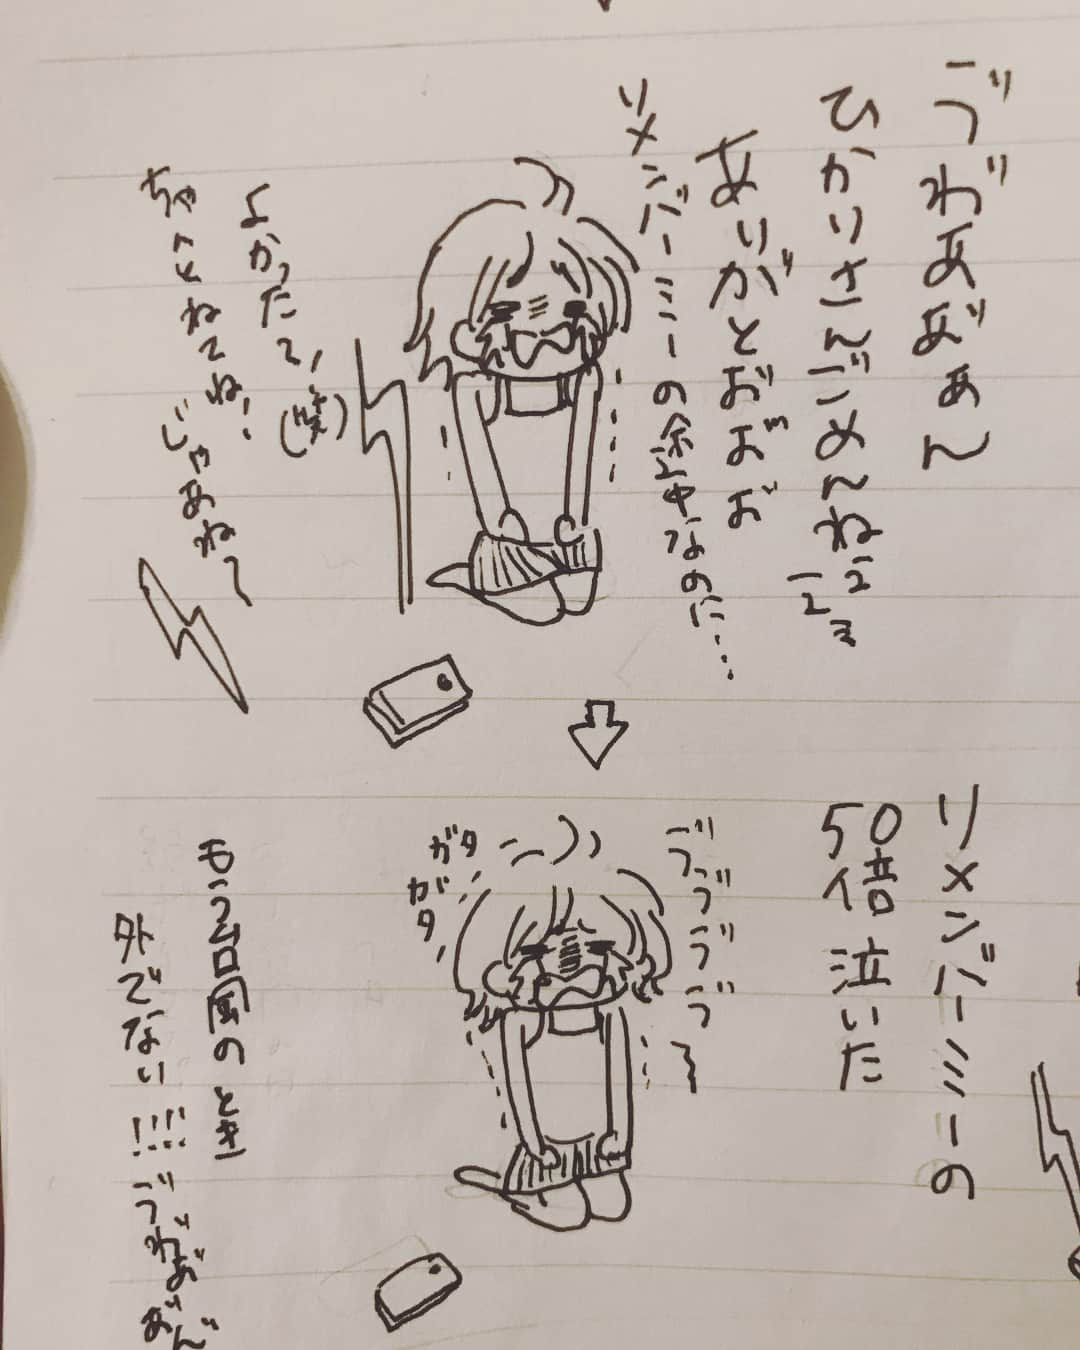 ゔわ゙あぁ゙ぁん
ひかりさんごめんねえ゙え゙ぇ
ありがどおお゙お゙
リメンバーミーの途中なのに…
よかったて!(笑)
ちゃんとねてね!じゃあね〜
リメンバーミーの
50倍泣いた
ゔゔゔゔ〜
ガタガタ
もう2台画のとき
外でない!!!ゔわ゙あ゙あ゙ん゙